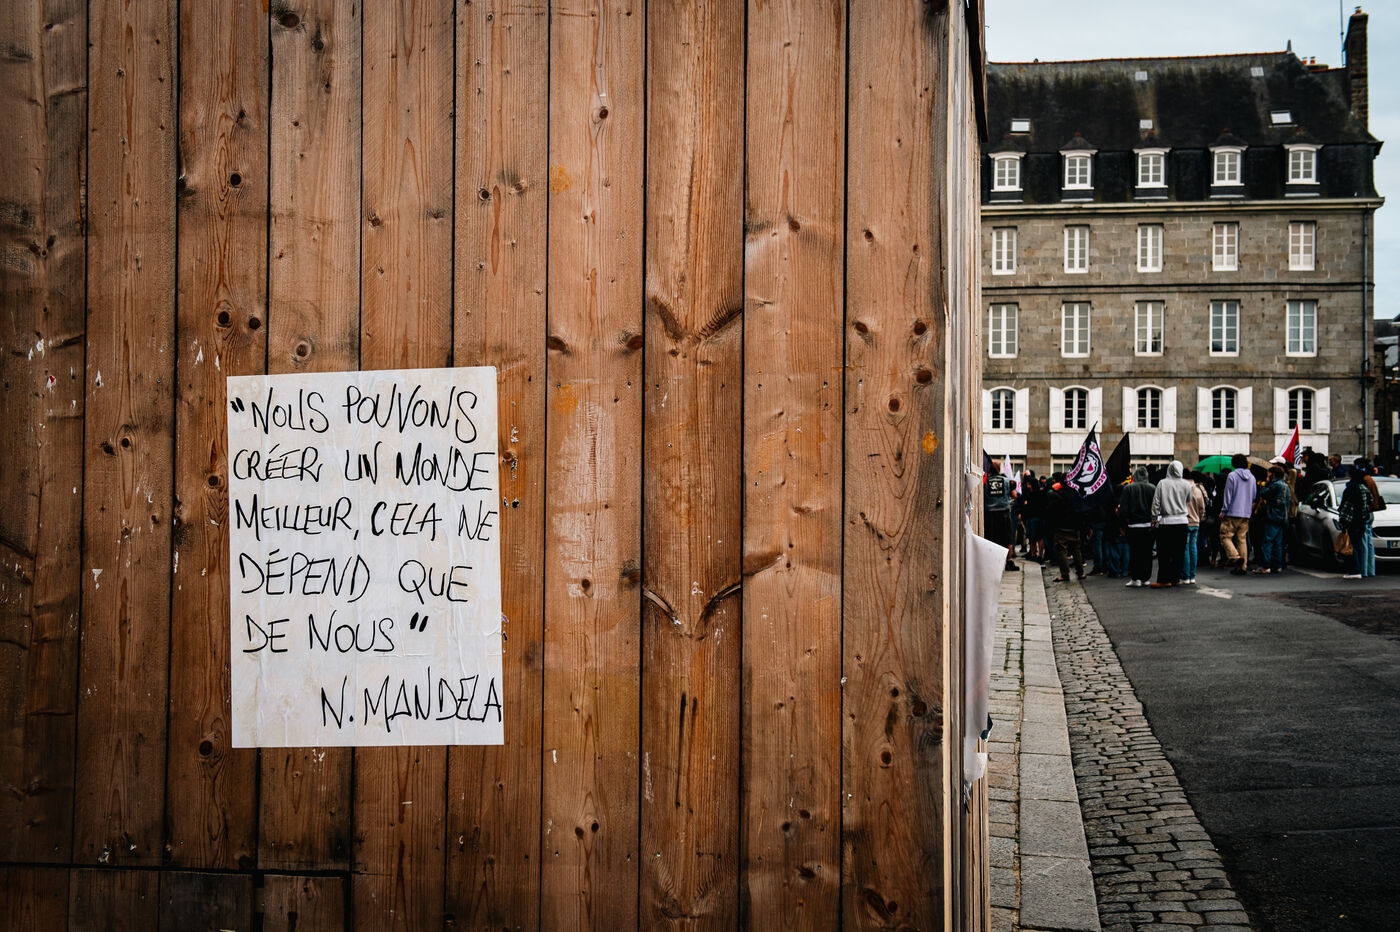 "NOUS POUVONS
CRÉER UN MONDE
MEILLEUR, CELA NE
DÉPEND QUE
DE NOUS"
N. MANDELA